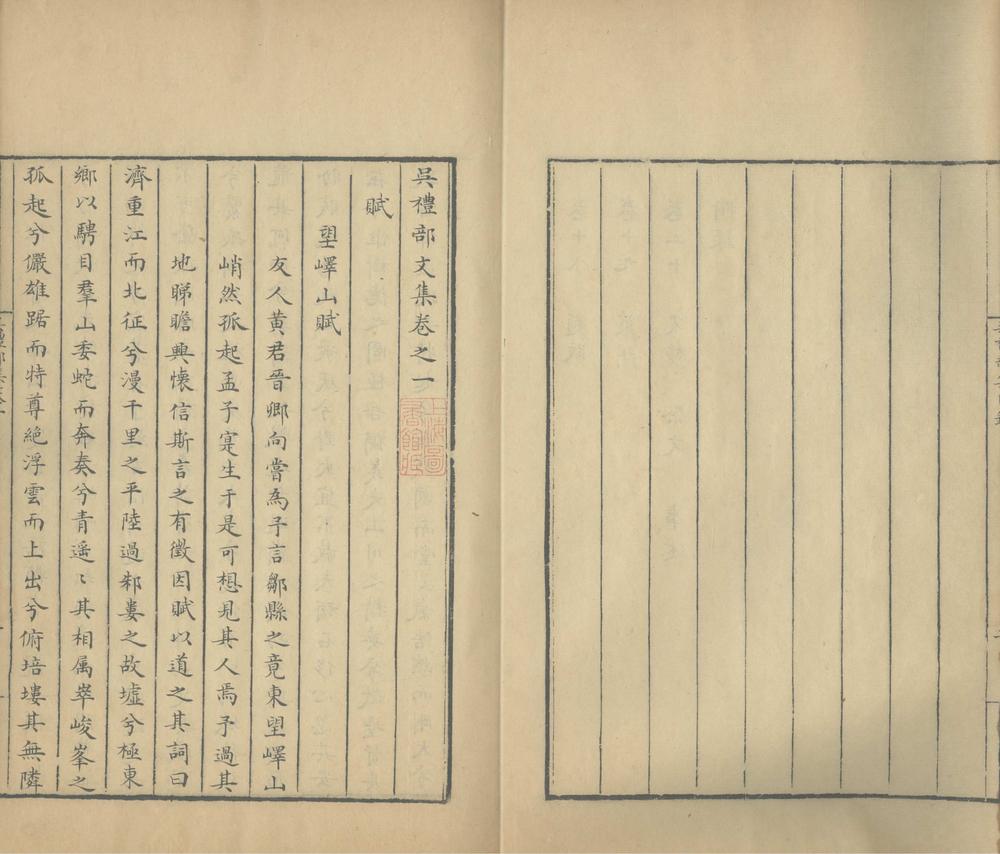 吳禮部文集卷之一
賦
望嶧山賦
友人黄君晉卿向嘗為予言鄒縣之竟東望嶧山
峭然孤起孟子寔生于是可想見其人焉予過其
地睇瞻興懷信斯言之有徵因賦以道之其詞曰
濟重江而北征兮漫千里之平陸過邾婁之故墟兮極東
鄉以騁目羣山委蛇而奔奏兮青遥〻其相属崒峻峯之
孤起兮儼雄踞而特尊絶浮雲而上出兮俯培塿其無隣
上海圖
書館藏